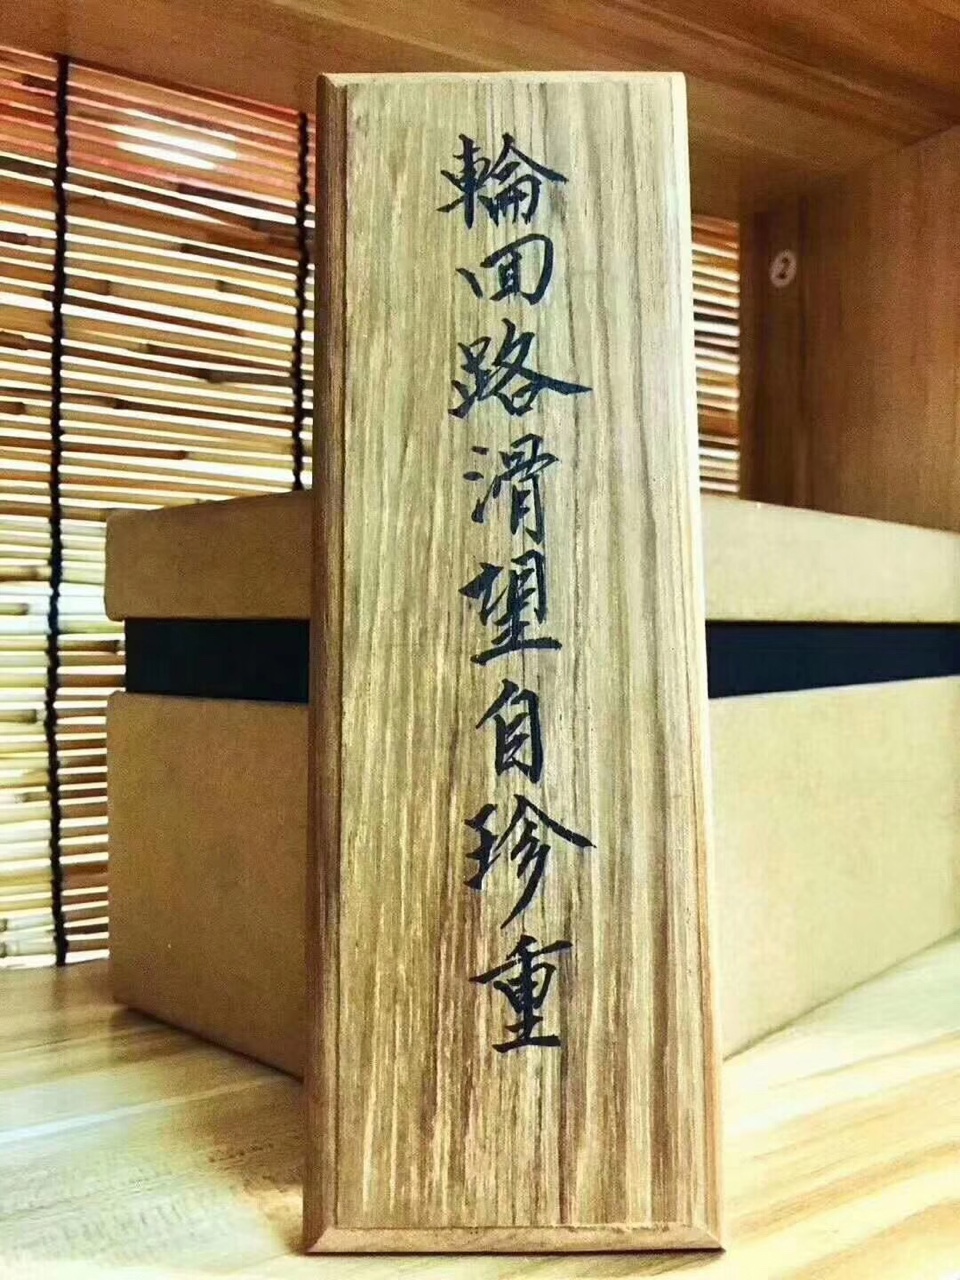 輪回路滑望自珍重
2